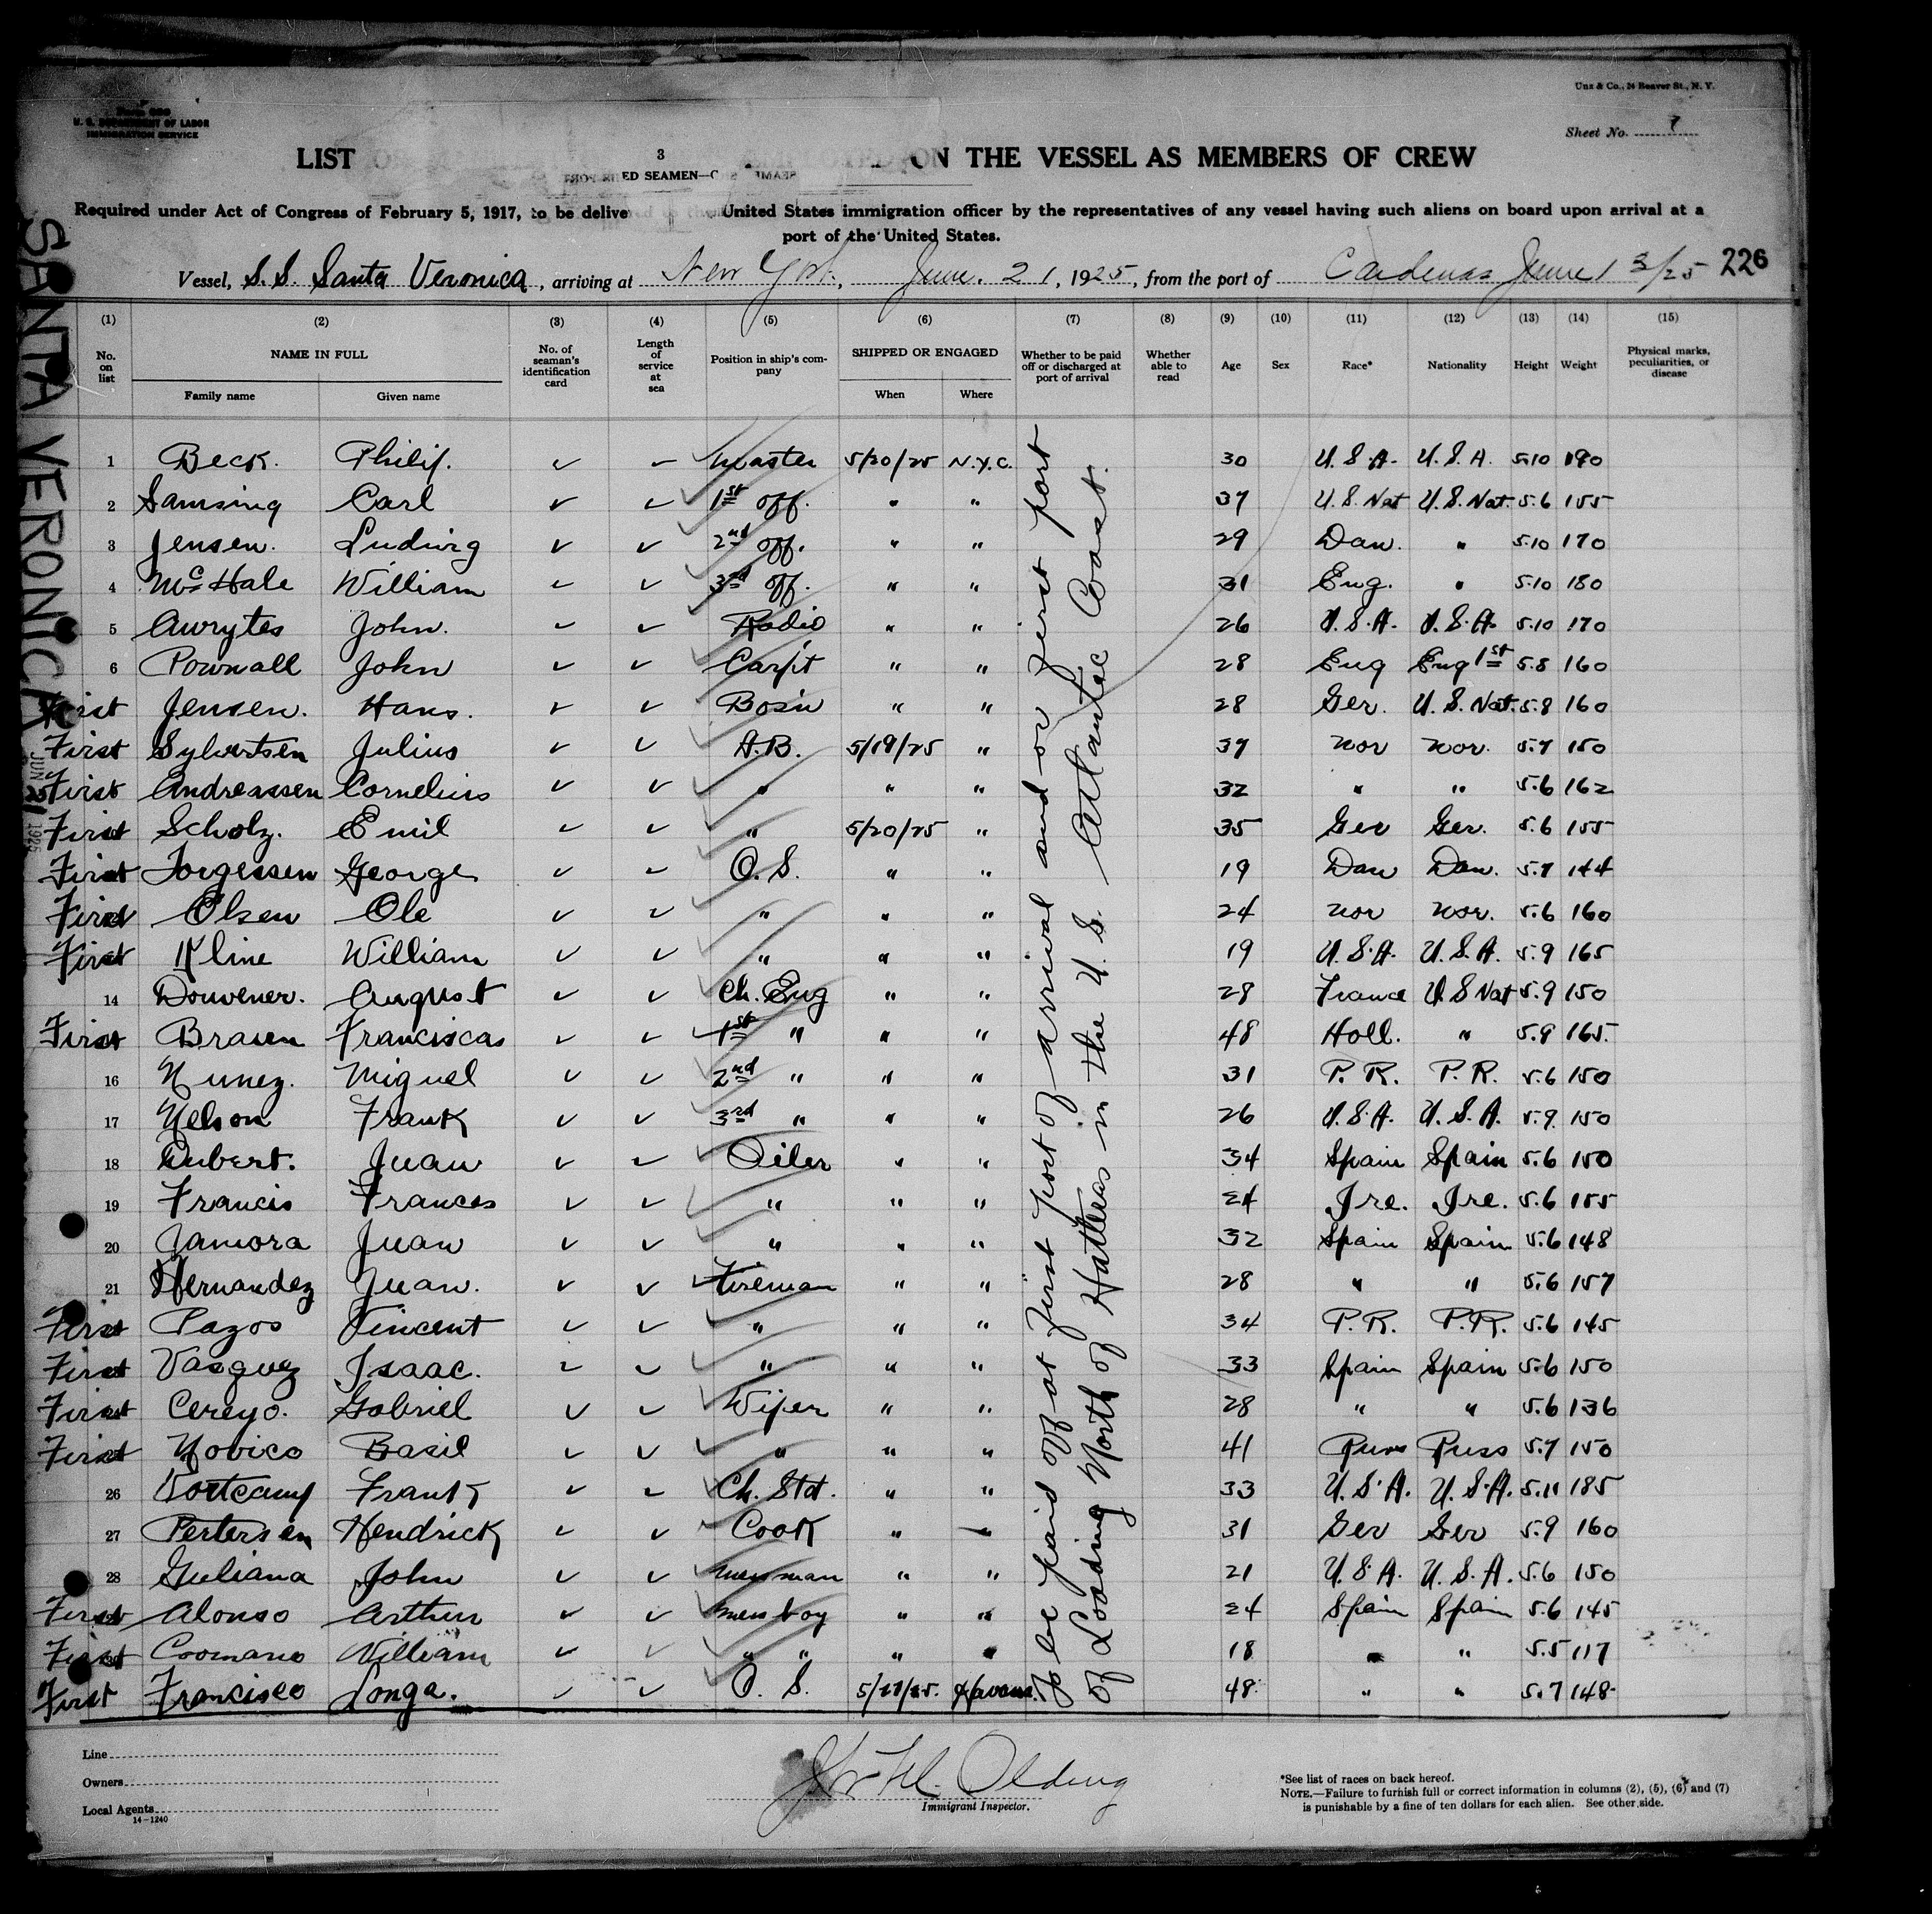 Unz & Co., 24 Beaver St., N. Y.
U. S. DEPARTMENT OF LABOR
IMMIGRATION SERVICE
Sheet No.
3
LIST ON THE VESSEL AS MEMBERS OF CREW
ED SEAMEN—
Required under Act of Congress of February 5, 1917, to be delive United States immigration officer by the representatives of any vessel having such aliens on board upon arrival at a
port of the United States.
Vessel, S.S. Santa Veronica, arriving at New York, June. 21, 1925, from the port of Cardenas June 13/25 226
SANTA VERONICA
JUN 21 1925
(1) (2) (3) (4) (5) (6) (7) (8) (9) (10) (11) (12) (13) (14) (15)
No. on list NAME IN FULL No. of seaman's identification card Length of service at sea Position in ship's company SHIPPED OR ENGAGED Whether to be paid off or discharged at port of arrival Whether able to read Age Sex Race* Nationality Height Weight Physical marks, peculiarities, or disease
Family name Given name When Where
To be paid off at first port of arrival and or first port
of Loading North of Hatteras in the U. S. Atlantic Coast.
1 Beck. Philip. Master 5/20/25 N.Y.C. 30 U.S.A. U.S.A. 5.10 190
2 Samsing Carl 1st off. " " 37 U.S. Nat U.S. Nat. 5.6 155
3 Jensen. Ludwig 2nd off. " " 29 Dan. " 5.10 170
4 McHale William 3rd off. " " 31 Eng. " 5.10 180
5 Aurytes John. Radio " " 26 U.S.A. U.S.A. 5.10 170
6 Pownall John Carpt " " 28 Eng Eng 1st 5.8 160
First Jensen. Hans. Bosn " " 28 Ger. U.S. Nat. 5.8 160
First Sylvertsen Julius A.B. 5/19/25 " 37 Nor Nor. 5.7 150
First Andreassen Cornelius " " " 32 " " 5.6 162
First Scholz. Emil " 5/20/25 " 35 Ger Ger. 5.6 155
First Jorgessen George O.S. " " 19 Dan Dan. 5.7 144
First Olsen Ole " " " 24 Nor Nor. 5.6 160
First Kline William " " " 19 U.S.A. U.S.A. 5.9 165
14 Douvener. August Ch. Eng " " 28 France U.S Nat 5.9 150
First Brasen Franciscas 1st " " " 48 Holl. " 5.9 165.
16 Nunez. Miguel 2nd " " " 31 P.R. P.R. 5.6 150
17 Nelson Frank 3rd " " " 26 U.S.A. U.S.A. 5.9. 150
18 Dubert. Juan Oiler " " 34 Spain Spain 5.6 150
19 Francis Frances " " " 24 Ire. Ire. 5.6 155
20 Zamora Juan " " " 32 Spain Spain 5.6 148
21 Hernandez Juan. Fireman " " 28 " " 5.6 157
First Pazos Vincent " " " 34 P.R. P.R. 5.6 145
First Vasquez Isaac. " " " 33 Spain Spain 5.6 150
First Cereyo. Gabriel Wiper " " 28 " " 5.6 136
First Novico Basil " " " 41 Russ Russ 5.7 150
26 Vortcamp Frank Ch. Std. " " 33 U.S.A. U.S.A. 5.11 185
27 Pertersen Hendrick Cook " " 31 Ger Ger 5.9 160
28 Guliana John messman " " 21 U.S.A. U.S.A. 5.6 150
First Alonso Arthur mess boy " " 24 Spain Spain 5.6 145
First Coomano William " " " " 18 " " 5.5 117
First Francisco Longa. O. S. Havana. 48 " " 5.7 148
Line
Owners
Local Agents
14—1240
Olding
Immigrant Inspector.
*See list of races on back hereof.
NOTE.—Failure to furnish full or correct information in columns (2), (5), (6) and (7)
is punishable by a fine of ten dollars for each alien. See other side.